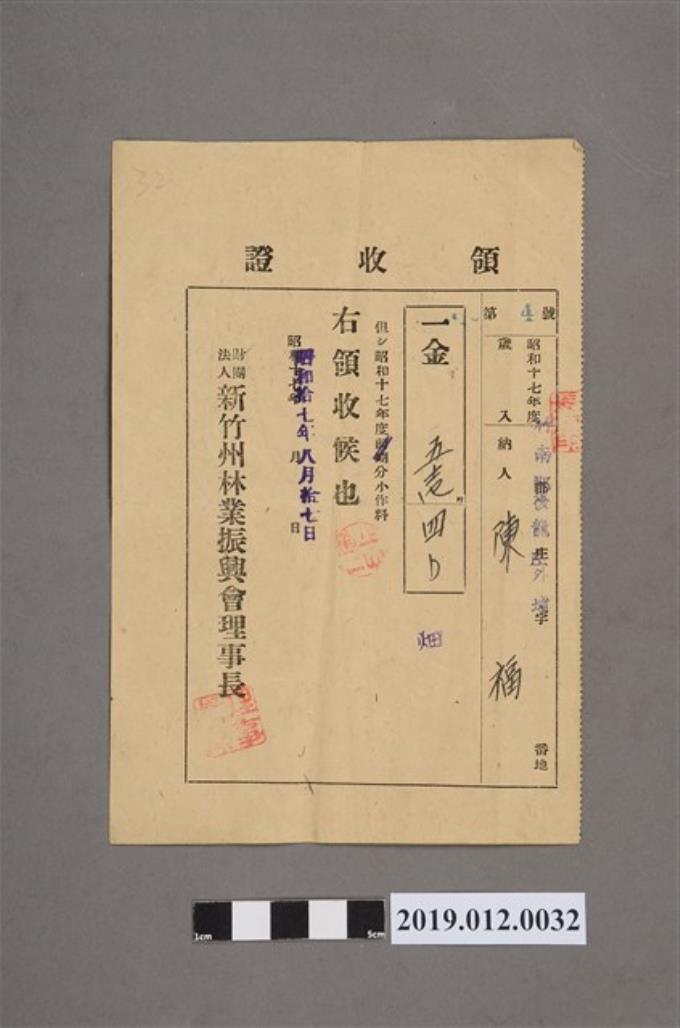 32
領收證
第 4 號
昭和十七年度
歲入納人 陳 福
竹南郡後龍庄外埔字 番地
一金
四
畑
但シ昭和十七年度 分小作料
右領收候也
昭和拾七年八月拾七日
財團法人 新竹州林業振興會理事長
1cm 5cm
2019.012.0032